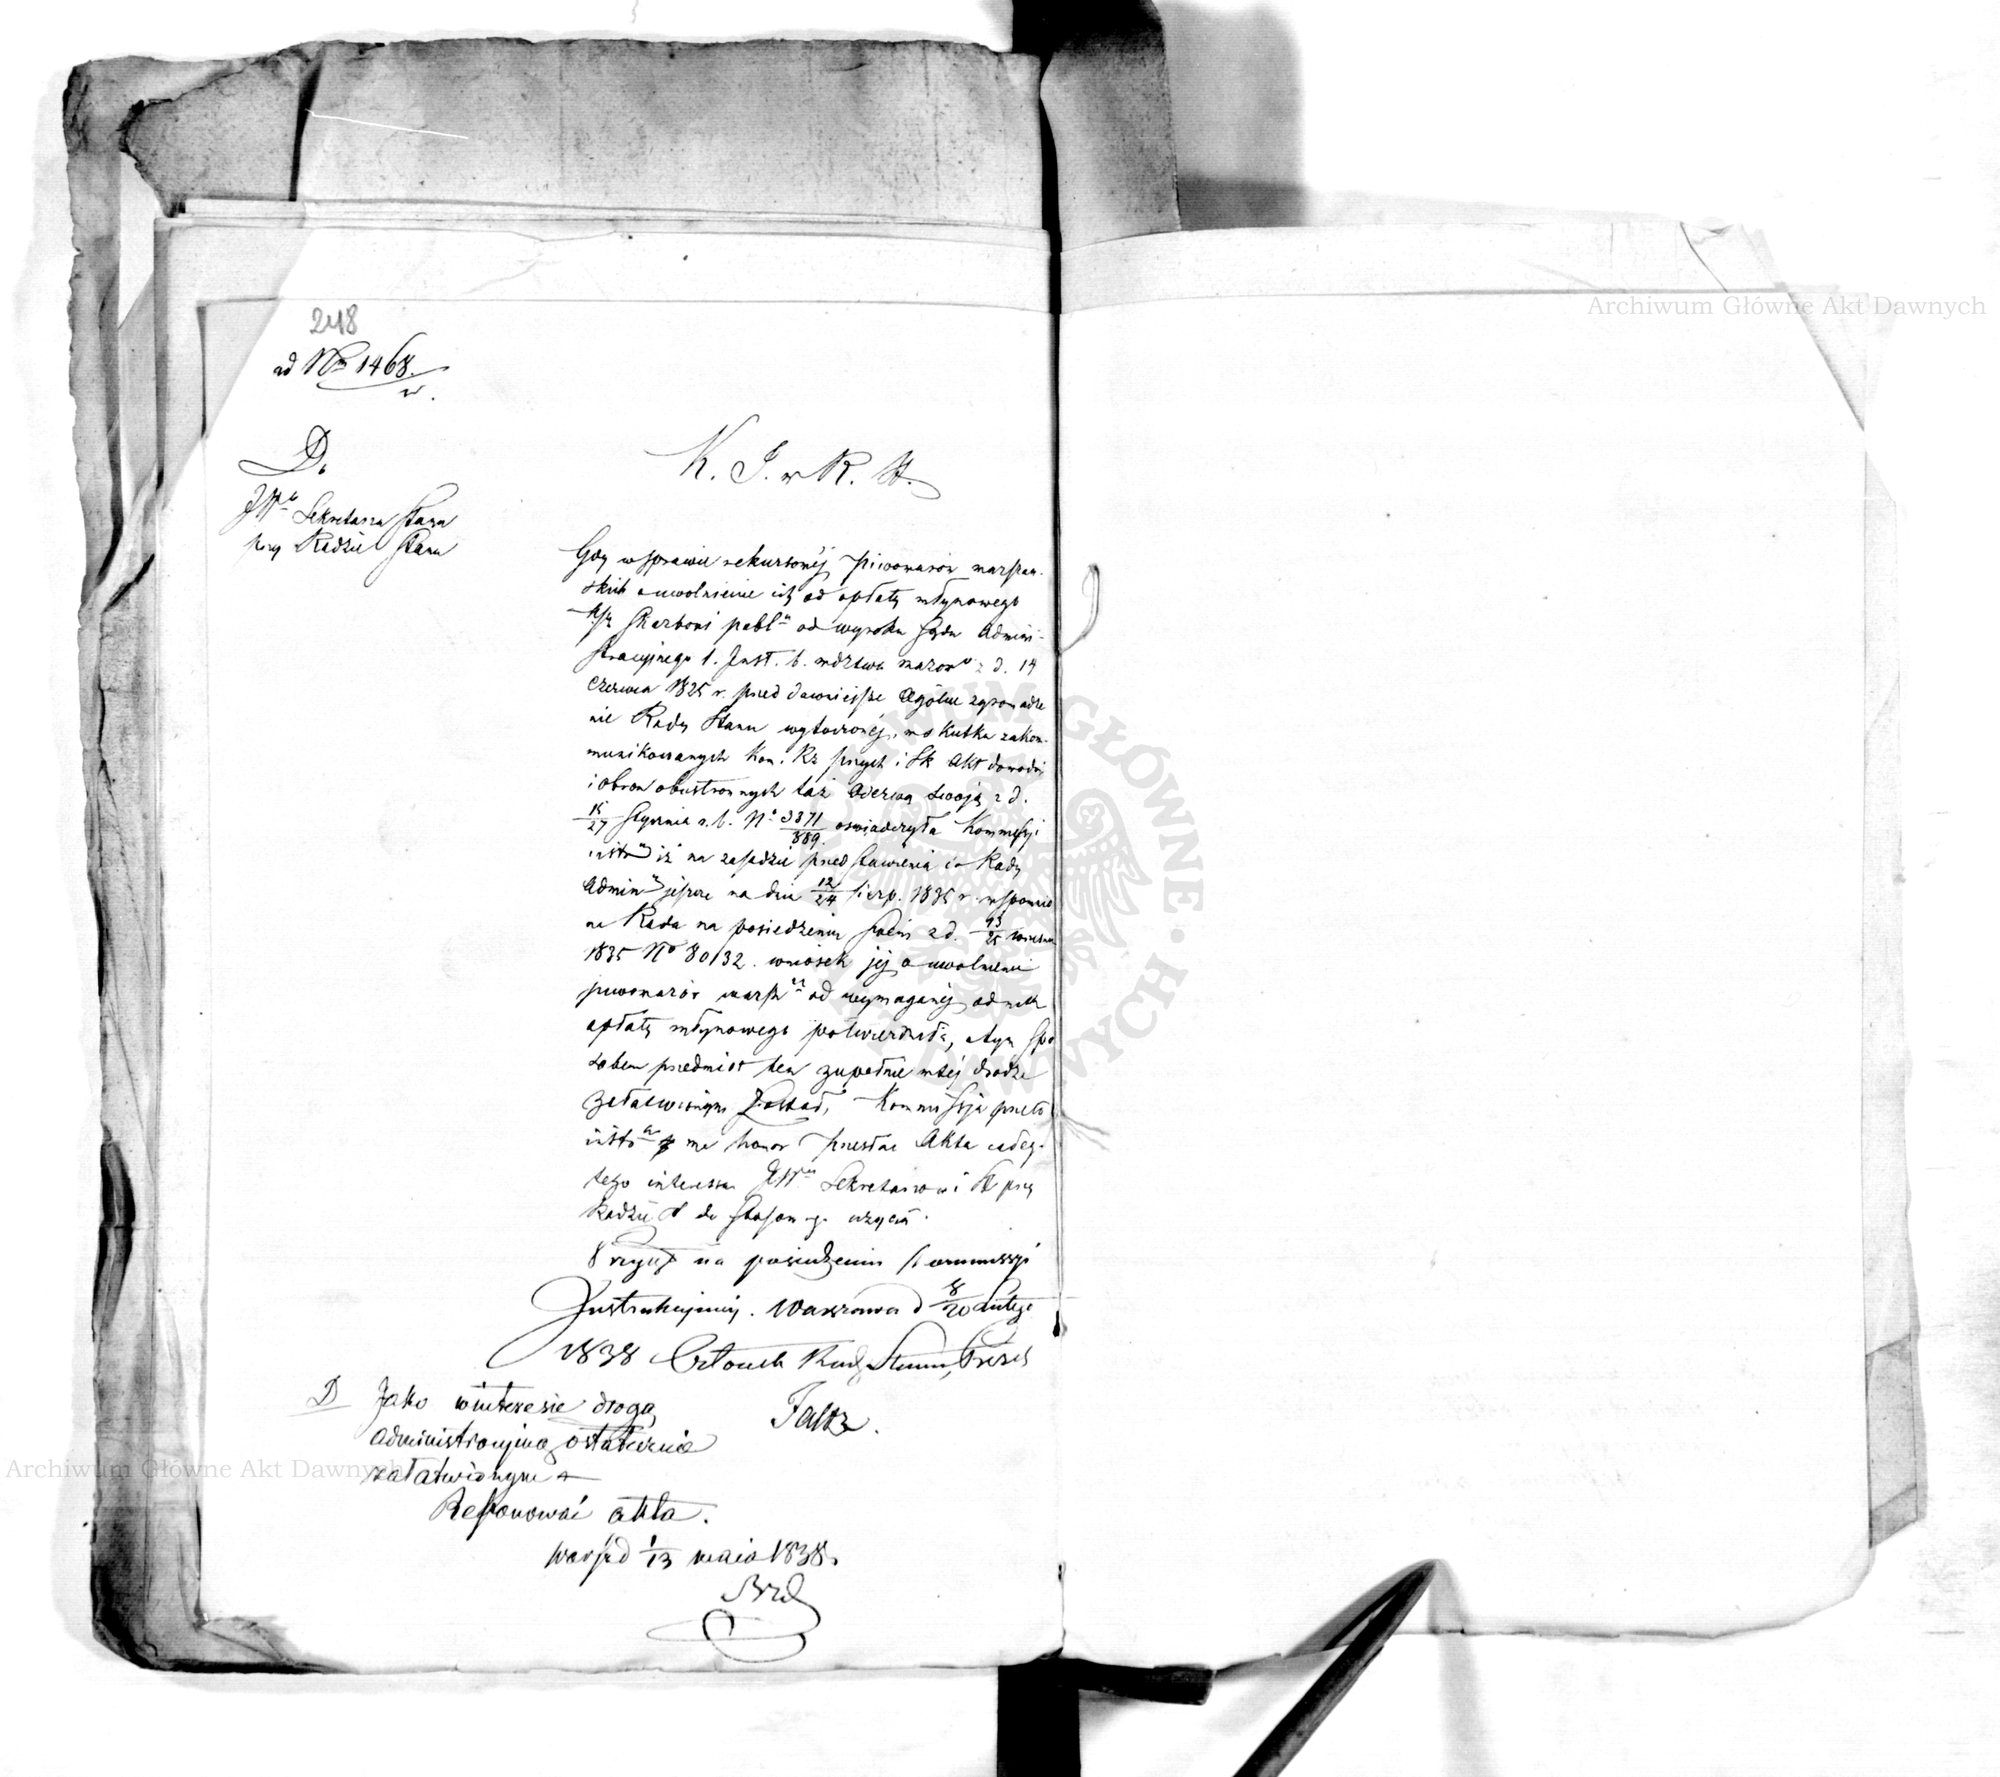 248
ad Nr 1468.
w.
D.
JWo Sekretarza Stanu
przy Radzie Stanu
K. I. w R. St.
Gdy w sprawie rekursowéj piwowarów warszaw-
skich o uwolnienie ich od opłaty młynowego
Skarbowi publ od wyroku Sądu Admini-
stracyjnego 1. Inst. b. wdztwa mazow z d. 14
Czerwca 1825 r. przed dawniejsze Ogólne zgromadze
nie Rady Stanu wytoczonéj, w skutku zakom-
munikowanych Kom. Rz przych i Sk Akt dowodów
i obron obustronnych taż Odezwą swoją z d.
15/27 Stycznia r. b. No 3371/889. oświadczyła Kommissyi
iż na zasadzie przedstawienia do Rady
Admin jeszcze na dniu 12/24 Sierp. 1835 r. wspomnio
na Rada na posiedzeniu swém z d. 13/25 Września
1835 No 80132. wniosek jéj o uwolnieniu
piwowarów warsz od wymaganéj od nich
opłaty młynowego potwierdziła, a tym spo
sobem przedmiot ten zupełnie w téj drodze
załatwionym został, Kommissja przeto
ma honor przesłać Akta całego
tego interessu JW Sekretarzowi St przy
Radzie St do stosow-g. użycia.
na posiedzeniu Kommissyi
Instrukcyjnéj. Warszawa d 8/20 Lutego
1838 Członek Rady Stanu, Prezes
Faltz.
D Jako w interesie drogą
administracyjną ostatecznie
załatwionym
Reponować akta.
Warsz d 1/13 maia 1838.